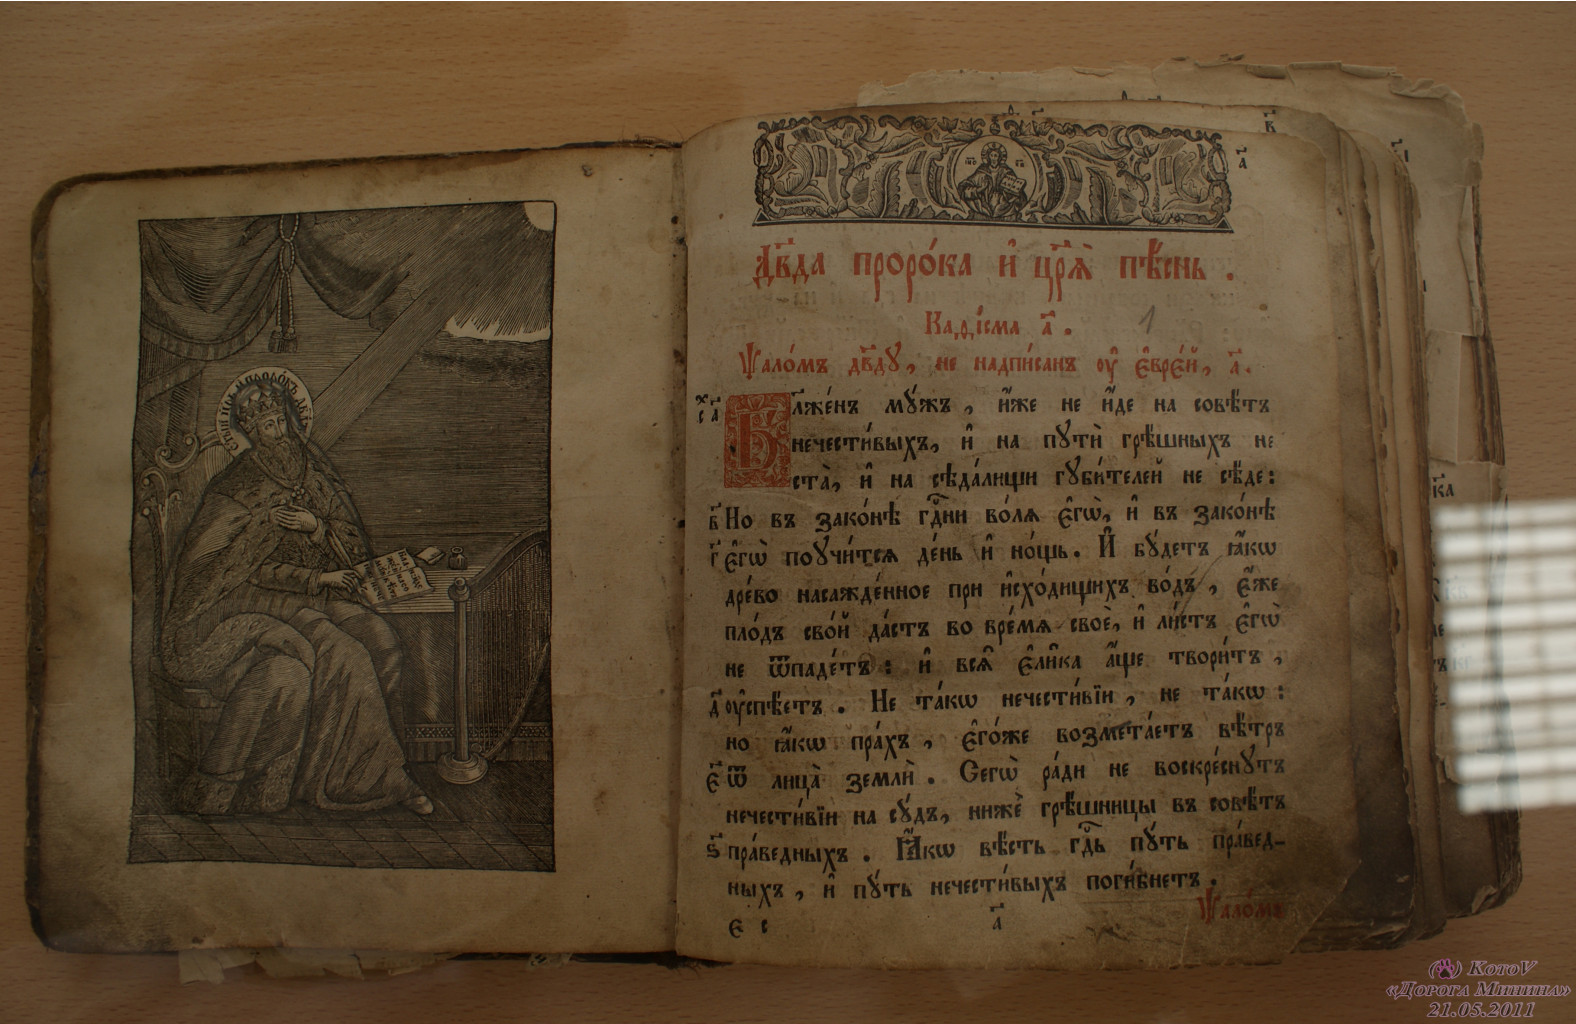 ст҃ый цр҃ь и пророкъ дв҃дъ
Дв҃да проро́ка и҆ цр҃ѧ̀ пѣ́снь .
Каѳі́сма а҃ . 1
Ѱало́мъ дв҃ду , не надпи́санъ ᲂу҆ є҆вре́й , а҃ .
Бл҃же́нъ мꙋ́жъ , и҆́же не и҆́де на совѣ́тъ
нечести́выхъ , и҆ на пꙋтѝ грѣ́шныхъ не
ста̀ , и҆ на сѣда́лищи гꙋби́телей не сѣ́де :
в҃ Но въ зако́нѣ гд҇ни во́лѧ є҆гѡ̀ , и҆ въ зако́нѣ
г҃ є҆гѡ̀ поꙋчи́тсѧ де́нь и҆ но́щь . И҆ бꙋ́детъ ꙗ҆́кѡ
дре́во насажде́нное при и҆схо́дищихъ во́дъ , є҆́же
пло́дъ сво́й да́стъ во вре́мѧ своѐ , и҆ ли́стъ є҆гѡ̀
не ѿпаде́тъ : и҆ всѧ̑ є҆ли̑ка а҆́ще твори́тъ ,
д҃ ᲂу҆спѣ́етъ . Не та́кѡ нечести́вїи , не та́кѡ :
но ꙗ҆́кѡ пра́хъ , є҆го́же возмета́етъ вѣ́тръ
є҃ ѿ лица̀ землѝ . Сегѡ̀ ра́ди не воскре́снꙋтъ
нечести́вїи на сꙋ́дъ , нижѐ грѣ́шницы въ совѣ́тъ
ѕ҃ пра́ведныхъ . Ꙗ҆́кѡ вѣ́сть гд҇ь пꙋ́ть пра́вед-
ныхъ , и҆ пꙋ́ть нечести́выхъ поги́бнетъ .
Ѱало́мъ
є с а҃
КотоV
«Дорога Минина»
21.05.2011